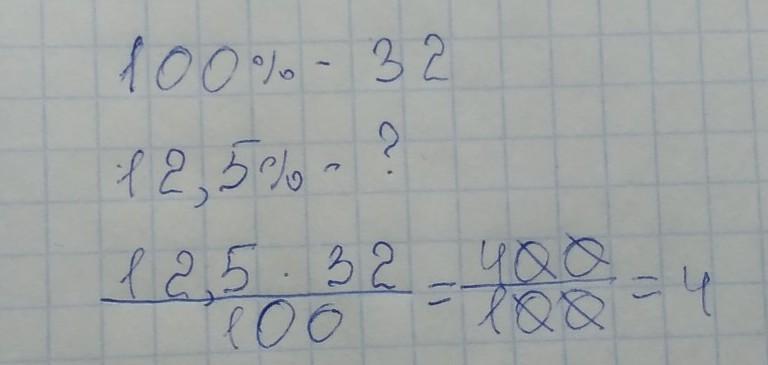 100% - 32
12,5% - ?
12,5 · 32 / 100 = 400 / 100 = 4